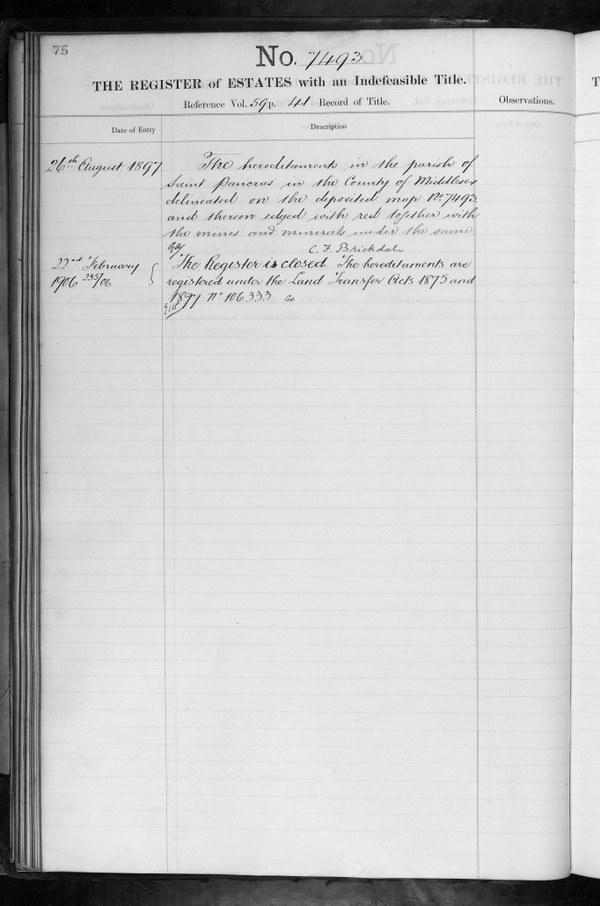 75
No. 7493
THE REGISTER of ESTATES with an Indefeasible Title.
Reference Vol. 59 p. 41 Record of Title.
Observations.
Date of Entry
Description
26th August 1897
The hereditaments in the parish of
Saint Pancras in the County of Middlesex
delineated on the deposited map No. 7493
and thereon edged with red together with
the mines and minerals under the same
C. F. Brickdale
22nd February
1906 235/06
The Register is closed. The hereditaments are
registered under the Land Transfer Acts 1875 and
1897 No 106333